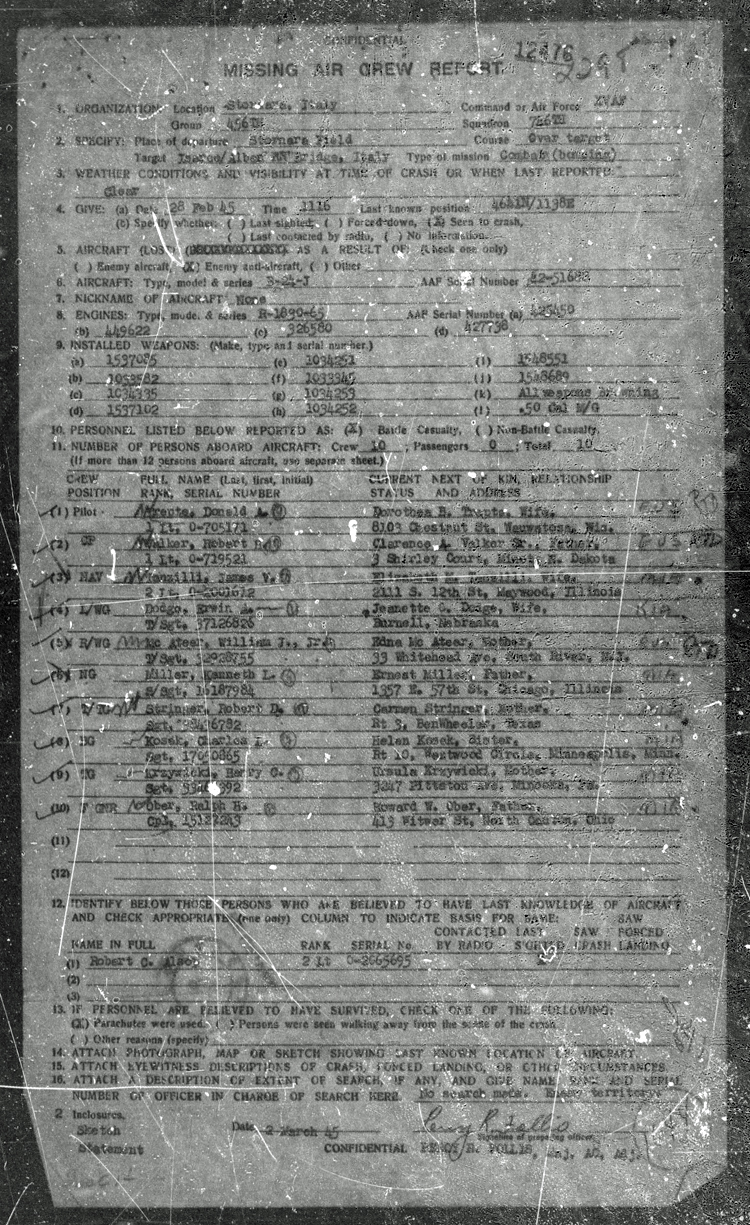 CONFIDENTIAL
MISSING AIR CREW REPORT
12476
1. ORGANIZATION: Location Stornara, Italy Command or Air Force XVAF
Group 456TH Squadron 746TH
2. SPECIFY: Place of departure Stornara Field Course Over target
Target Isarco/Albes RR Bridge, Italy Type of mission Combat (bombing)
3. WEATHER CONDITIONS AND VISIBILITY AT TIME OF CRASH OR WHEN LAST REPORTED:
Clear
4. GIVE: (a) Date 28 Feb 45 Time 1116 Last known position 4641N/1138E
(b) Specify whether: ( ) Last sighted, ( ) Forced down, (X) Seen to crash,
( ) Last contacted by radio, ( ) No information.
5. AIRCRAFT (LOST) AS A RESULT OF: (Check one only)
( ) Enemy aircraft, (X) Enemy anti-aircraft, ( ) Other
6. AIRCRAFT: Type, model & series B-24-J AAF Serial Number
7. NICKNAME OF AIRCRAFT None
8. ENGINES: Type, model & series R-1890-65 AAF Serial Number (a) 425450
(b) 449622 (c) 326580 (d) 427738
9. INSTALLED WEAPONS: (Make, type and serial number.)
(a) 1537085 (e) 1034251 (i) 1548551
(b) 1053582 (f) 1033345 (j) 1548689
(c) 1034335 (g) 1034253 (k) All weapons Browning
(d) 1537102 (h) 1034252 (l) .50 Cal M/G
10. PERSONNEL LISTED BELOW REPORTED AS: (X) Battle Casualty, ( ) Non-Battle Casualty,
11. NUMBER OF PERSONS ABOARD AIRCRAFT: Crew 10 ; Passengers 0 ; Total 10
(If more than 12 persons aboard aircraft, use separate sheet.)
CREW FULL NAME (Last, first, initial) CURRENT NEXT OF KIN, RELATIONSHIP
POSITION RANK, SERIAL NUMBER STATUS AND ADDRESS
(1) Pilot Trents, Donald A. Dorothea B. Trents, Wife,
1 Lt, O-705171 8103 Chestnut St, Wauwatosa, Wis.
(2) CP Walker, Robert R. Clarence A. Walker Sr., Father,
1 Lt, O-719521 3 Shirley Court, Minot, N. Dakota
(3) NAV James V. Wife,
2 Lt, O-2001612 2111 S. 12th St, Maywood, Illinois
(4) L/WG Dodge, Erwin A. Jeanette C. Dodge, Wife,
T/Sgt, 37126826 Burwell, Nebraska
(5) R/WG Mc Ateer, William J., Jr. Edna Mc Ateer, Mother,
T/Sgt, 32928755 33 Whitehead Ave, South River, N.J.
(6) NG Miller, Kenneth L. Ernest Miller, Father,
S/Sgt, 16187984 1357 E. 57th St, Chicago, Illinois
(7) Stringer, Robert D. Carmen Stringer, Mother,
Sgt, Rt 3, BenWheeler, Texas
(8) Kosek, Charles I. Helen Kosek, Sister,
Sgt, Rt 10, Westwood Circle, Minneapolis, Minn.
(9) Krzywicki, Harry C. Ursula Krzywicki, Mother,
Sgt, 3247 Pittston Ave, Minooka, Pa.
(10) Ober, Ralph H. Howard W. Ober, Father,
Cpl, 15122243 413 Witwer St, North Canton, Ohio
(11)
(12)
12. IDENTIFY BELOW THOSE PERSONS WHO ARE BELIEVED TO HAVE LAST KNOWLEDGE OF AIRCRAFT
AND CHECK APPROPRIATE (one only) COLUMN TO INDICATE BASIS FOR SAME: SAW
CONTACTED LAST SAW FORCED
NAME IN FULL RANK SERIAL No. BY RADIO SIGHTED CRASH LANDING
(1) Robert C. 2 Lt O-2065695 X
(2)
(3)
13. IF PERSONNEL ARE BELIEVED TO HAVE SURVIVED, CHECK ONE OF THE FOLLOWING:
(X) Parachutes were used. ( ) Persons were seen walking away from the scene of the crash
( ) Other reasons (specify)
14. ATTACH PHOTOGRAPH, MAP OR SKETCH SHOWING LAST KNOWN LOCATION OF AIRCRAFT
15. ATTACH EYEWITNESS DESCRIPTIONS OF CRASH, FORCED LANDING, OR OTHER CIRCUMSTANCES
16. ATTACH A DESCRIPTION OF EXTENT OF SEARCH, IF ANY, AND GIVE NAME, RANK AND SERIAL
NUMBER OF OFFICER IN CHARGE OF SEARCH HERE No search made. Enemy territory.
2 Inclosures.
Sketch Date 2 March 45
Signature of preparing officer
Statement CONFIDENTIAL PERCY R. FOLLIS, Maj. AC, Adj.